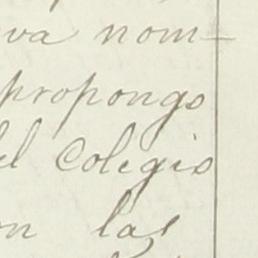 va nom-
propongo
el Colegio
on las